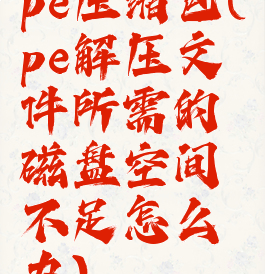 pe压缩包(
pe解压文
件所需的
磁盘空间
不足怎么
办)